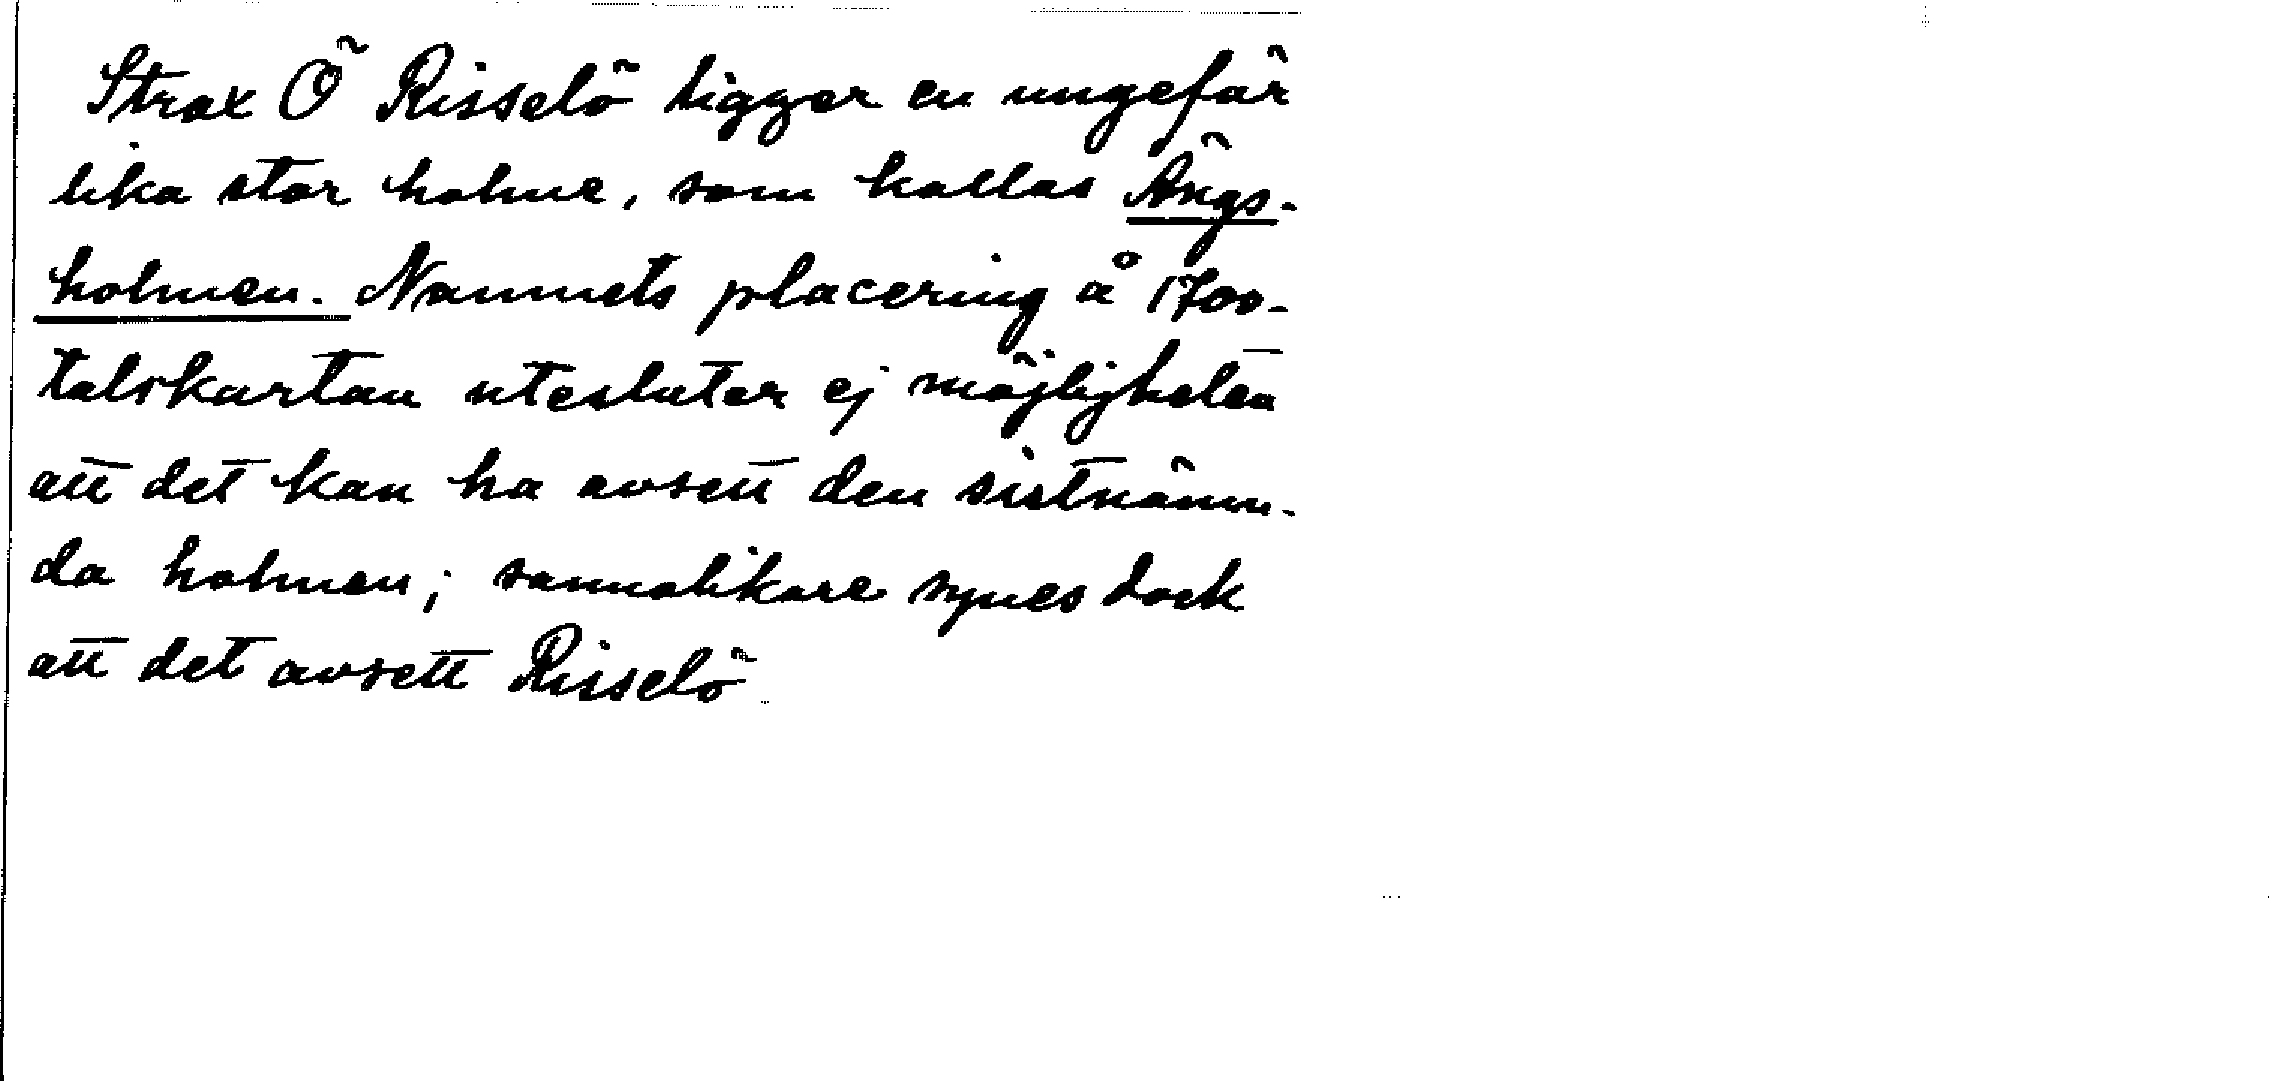 Strax Ö Risselö ligger en ungefär
lika stor holme, som kallas Ängs-
holmen. Namnets placering å 1700-
talskartan utesluter ej möjligheten
att det kan ha avsett den sistnämn-
da holmen; sannolikare synes dock
att det avsett Risselö